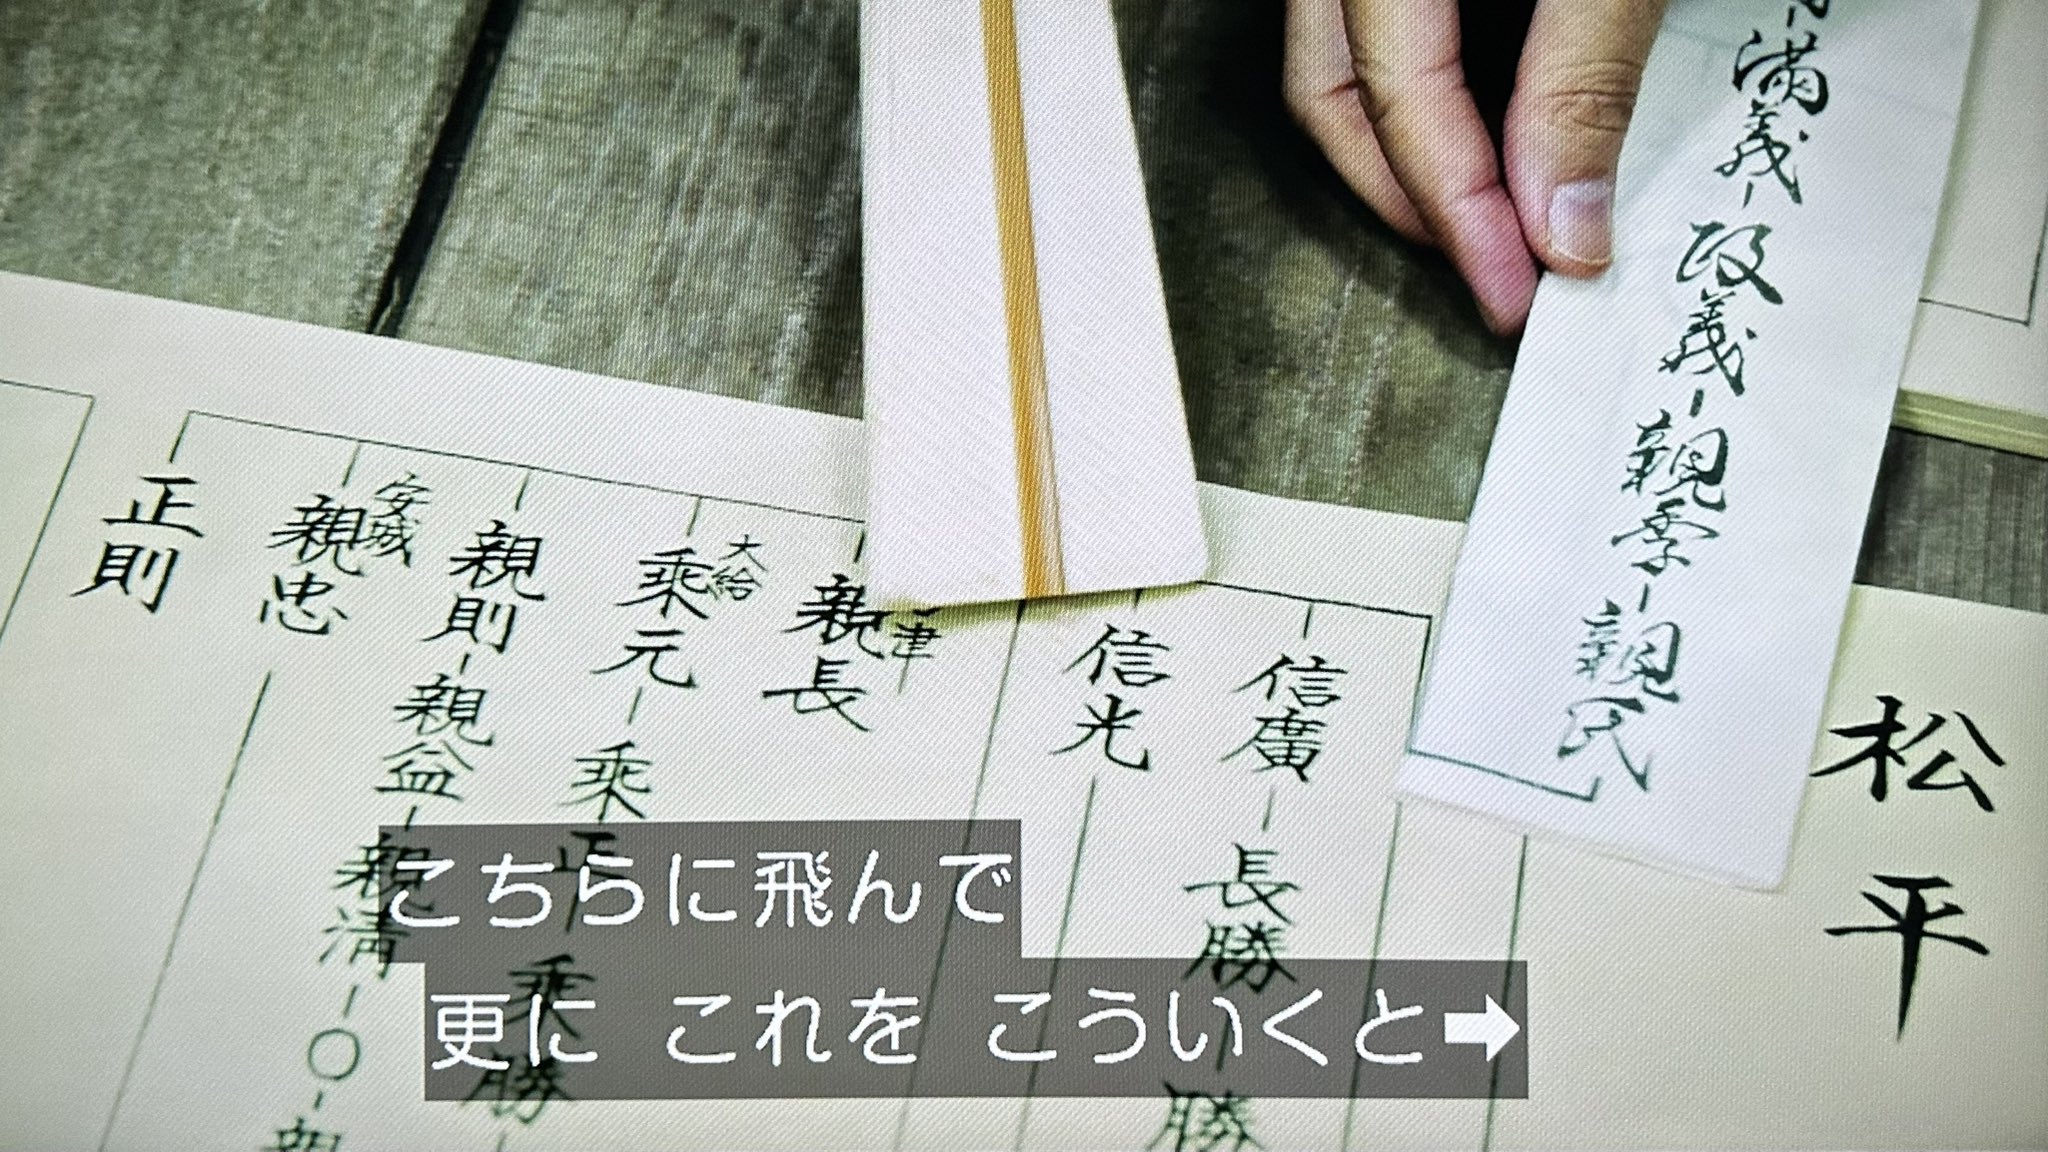 満義-政義-親季-親氏
松平
信廣-長勝-勝
信光
津
親長
大給
乗元-乗正-乗勝
親則-親益-親清-○-親
安城
親忠
正則
こちらに飛んで
更に これを こういくと➡